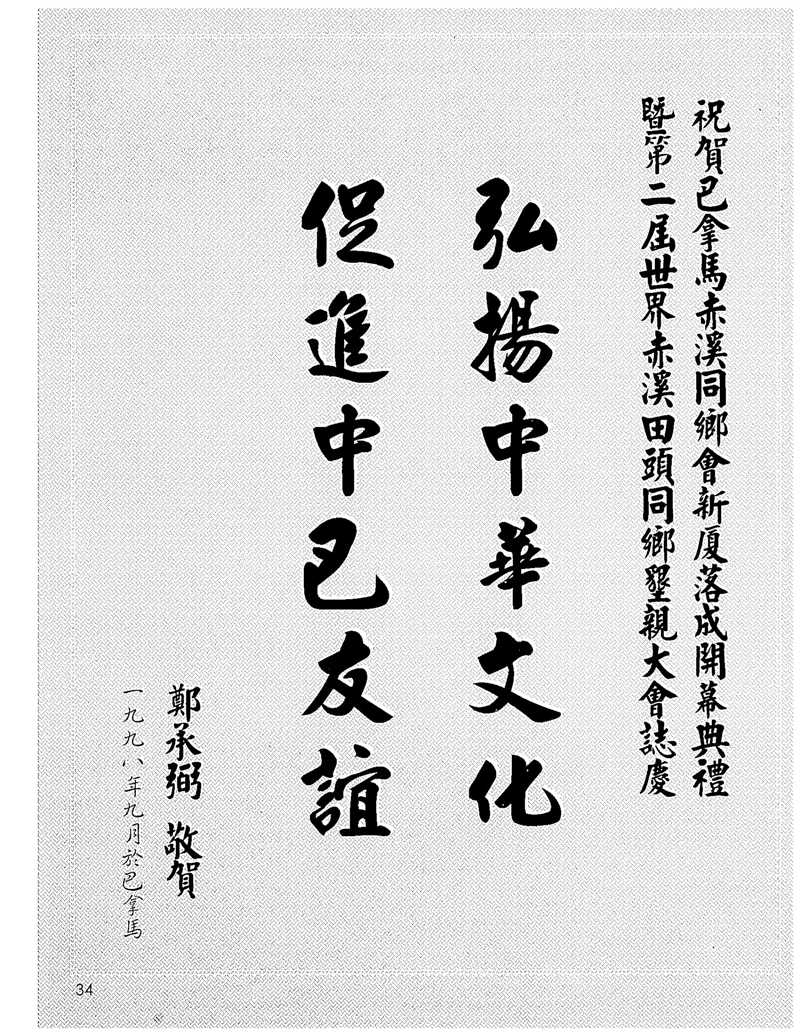 祝賀巴拿馬赤溪同鄉會新厦落成開幕典禮
暨第二屆世界赤溪田頭同鄉墾親大會誌慶
弘揚中華文化
促進中巴友誼
鄭承弼 敬賀
一九九八年九月於巴拿馬
34